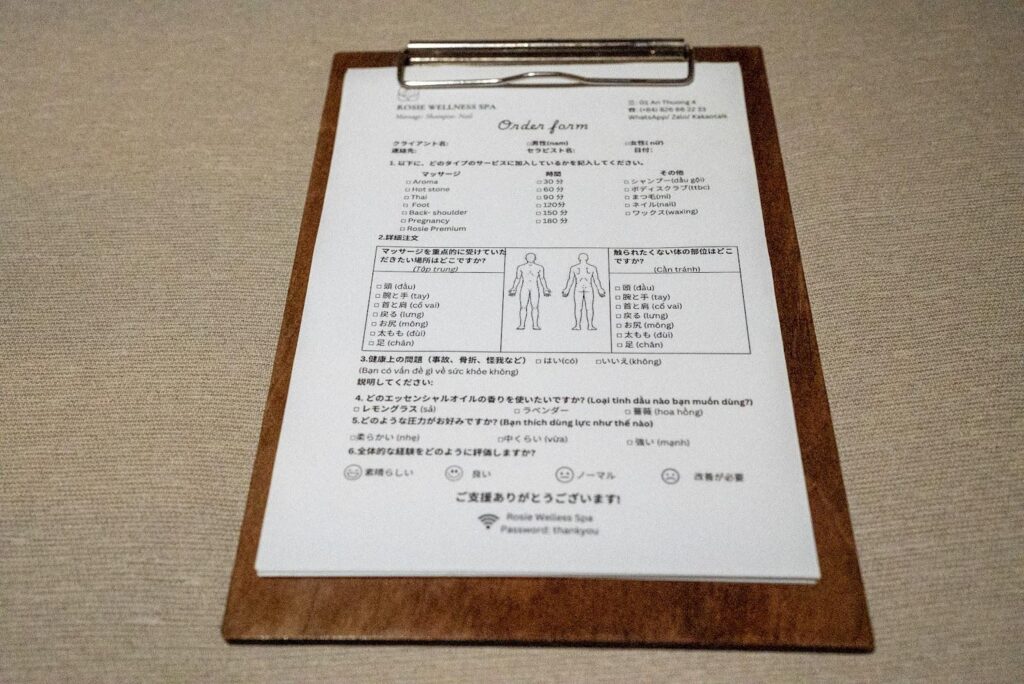 ROSIE WELLNESS SPA
Massage- Shampoo- Nail
: 01 An Thuong 4
: (+84) 826 66 22 33
WhatsApp/ Zalo/ Kakaotalk
Order form
クライアント名: □男性(nam) □女性( nữ)
連絡先: セラピスト名: 日付:
1. 以下に、どのタイプのサービスに加入しているかを記入してください。
マッサージ 時間 その他
□ Aroma □ 30 分 □ シャンプー(dầu gội)
□ Hot stone □ 60 分 □ ボディスクラブ(ttbc)
□ Thai □ 90 分 □ まつ毛(mi)
□ Foot □ 120分 □ ネイル(nail)
□ Back- shoulder □ 150 分 □ ワックス(waxing)
□ Pregnancy □ 180 分
□ Rosie Premium
2.詳細注文
マッサージを重点的に受けていた
だきたい場所はどこですか?
(Tập trung)
□ 頭 (đầu)
□ 腕と手 (tay)
□ 首と肩 (cổ vai)
□ 戻る (lưng)
□ お尻 (mông)
□ 太もも (đùi)
□ 足 (chân)
触られたくない体の部位はどこ
ですか?
(Cần tránh)
□ 頭 (đầu)
□ 腕と手 (tay)
□ 首と肩 (cổ vai)
□ 戻る (lưng)
□ お尻 (mông)
□ 太もも (đùi)
□ 足 (chân)
3.健康上の問題（事故、骨折、怪我など） □ はい(có) □いいえ(không)
(Bạn có vấn đề gì về sức khỏe không)
説明してください:
4. どのエッセンシャルオイルの香りを使いたいですか? (Loại tinh dầu nào bạn muốn dùng?)
□ レモングラス (sả) □ ラベンダー □ 薔薇 (hoa hồng)
5.どのような圧力がお好みですか? (Bạn thích dùng lực như thế nào)
□柔らかい (nhẹ) □中くらい (vừa) □ 強い (mạnh)
6.全体的な経験をどのように評価しますか?
素晴らしい 良い ノーマル 改善が必要
ご支援ありがとうございます!
Rosie Welless Spa
Password: thankyou